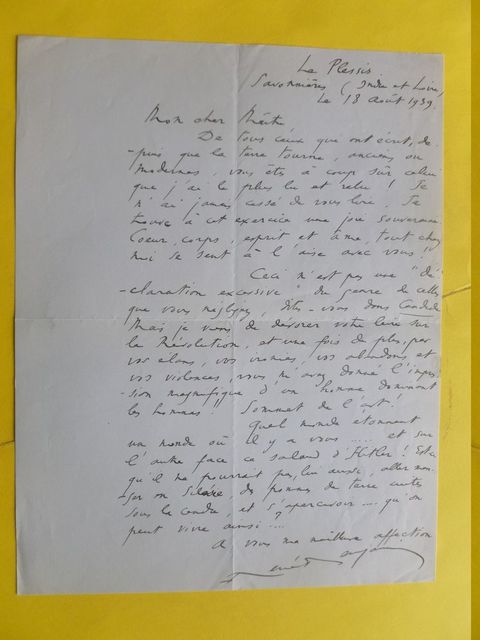 Le Plessis
Savonnières (Indre et Loire)
Le 18 août 1939.
Mon cher Maître
De tous ceux qui ont écrit, de-
-puis que la terre tourne, anciens ou
modernes, vous êtes à coup sûr celui
que j'ai le plus lu et relu ! Je
n'ai jamais cessé de vous lire. Je
trouve à cet exercice une joie souveraine
Coeur, corps, esprit et âme, tout chez
moi se sent à l'aise avec vous !
Ceci n'est pas une "dé-
-claration excessive" du genre de celles
que vous négligez, dites-vous dans Candide
Mais je viens de dévorer votre livre sur
la Révolution, et une fois de plus, par
vos élans, vos ironies, vos abandons et
vos violences, vous m'avez donné l'impres-
-sion magnifique d'un "homme dominant
les hommes" Sommet de l'art !
Quel monde étonnant
un monde où il y a vous .... et sur
l'autre face ce salaud d'Hitler ! Est-ce
qu'il ne pourrait pas, lui aussi, aller
en Silésie, des pommes de terre cuites
sous la cendre, et s'apercevoir .... qu'on
peut vivre ainsi ....?
A vous ma meilleure affection